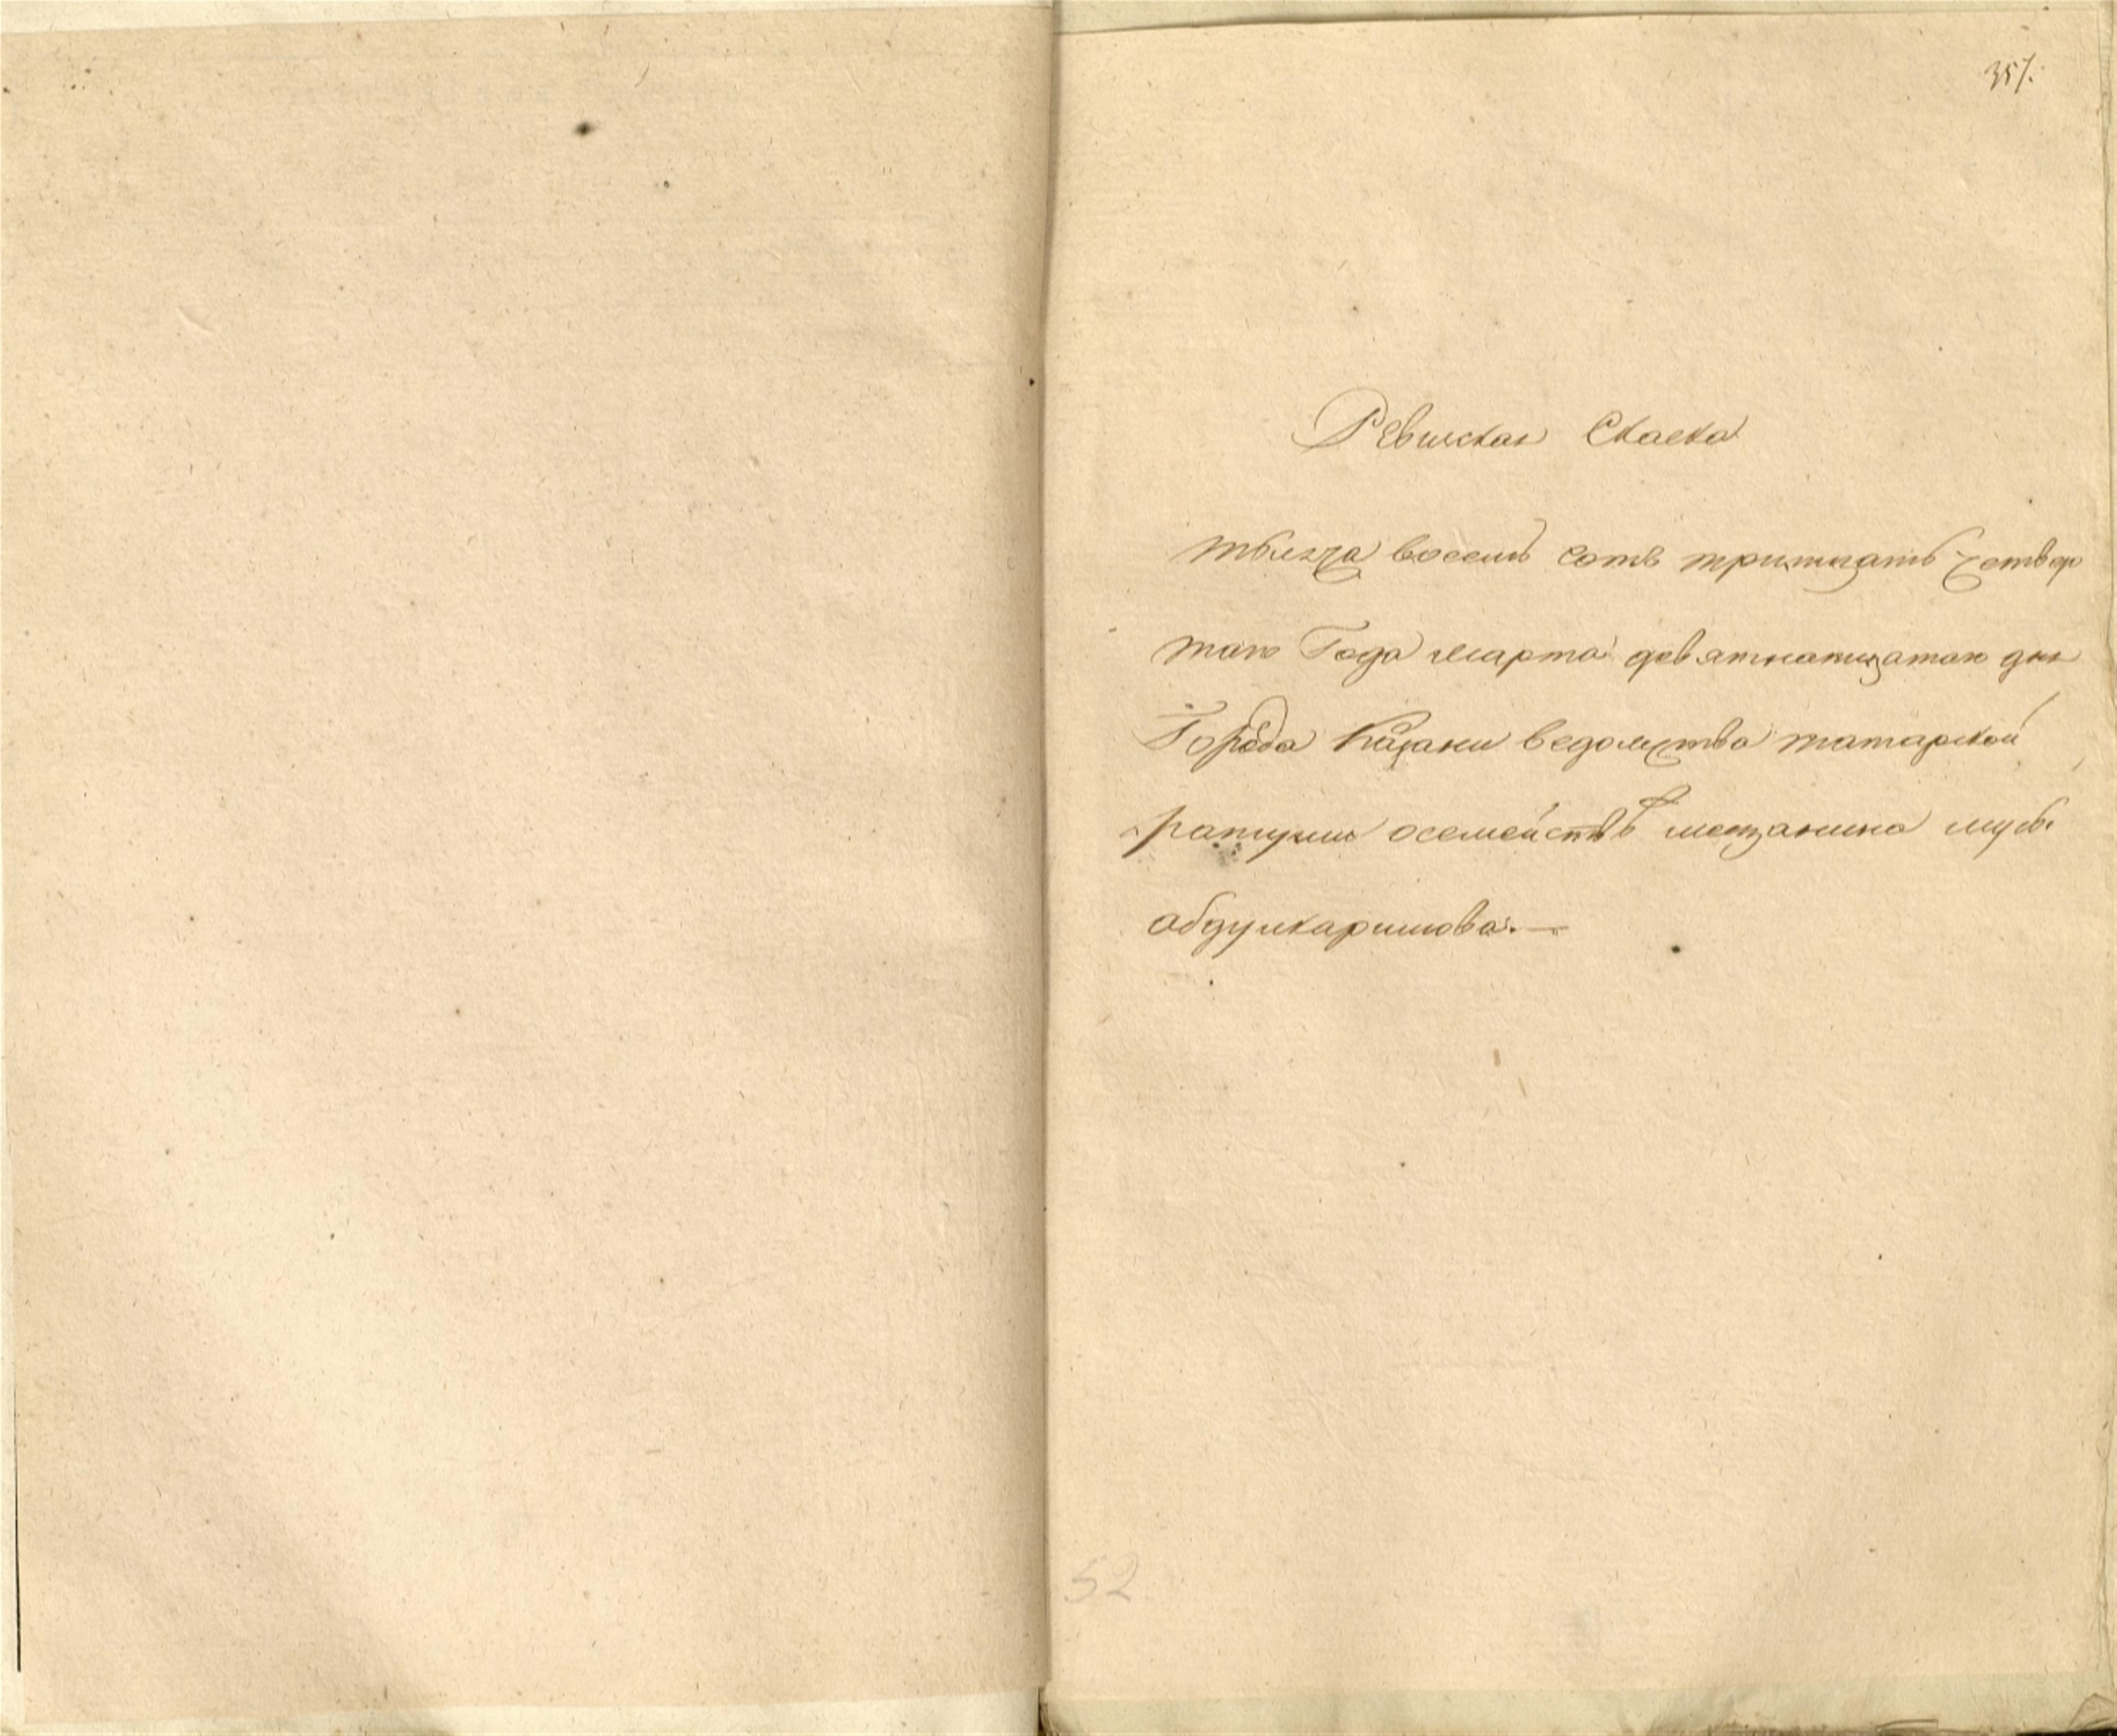 357.
Ревиская Скаска
тысяча восемь сотъ тритцать четвер
таго Года марта девятнатцатаго дня
Города Казани ведомства татарской
ратуши осемействѣ мещанина мусы
абдулкаримова. —
52